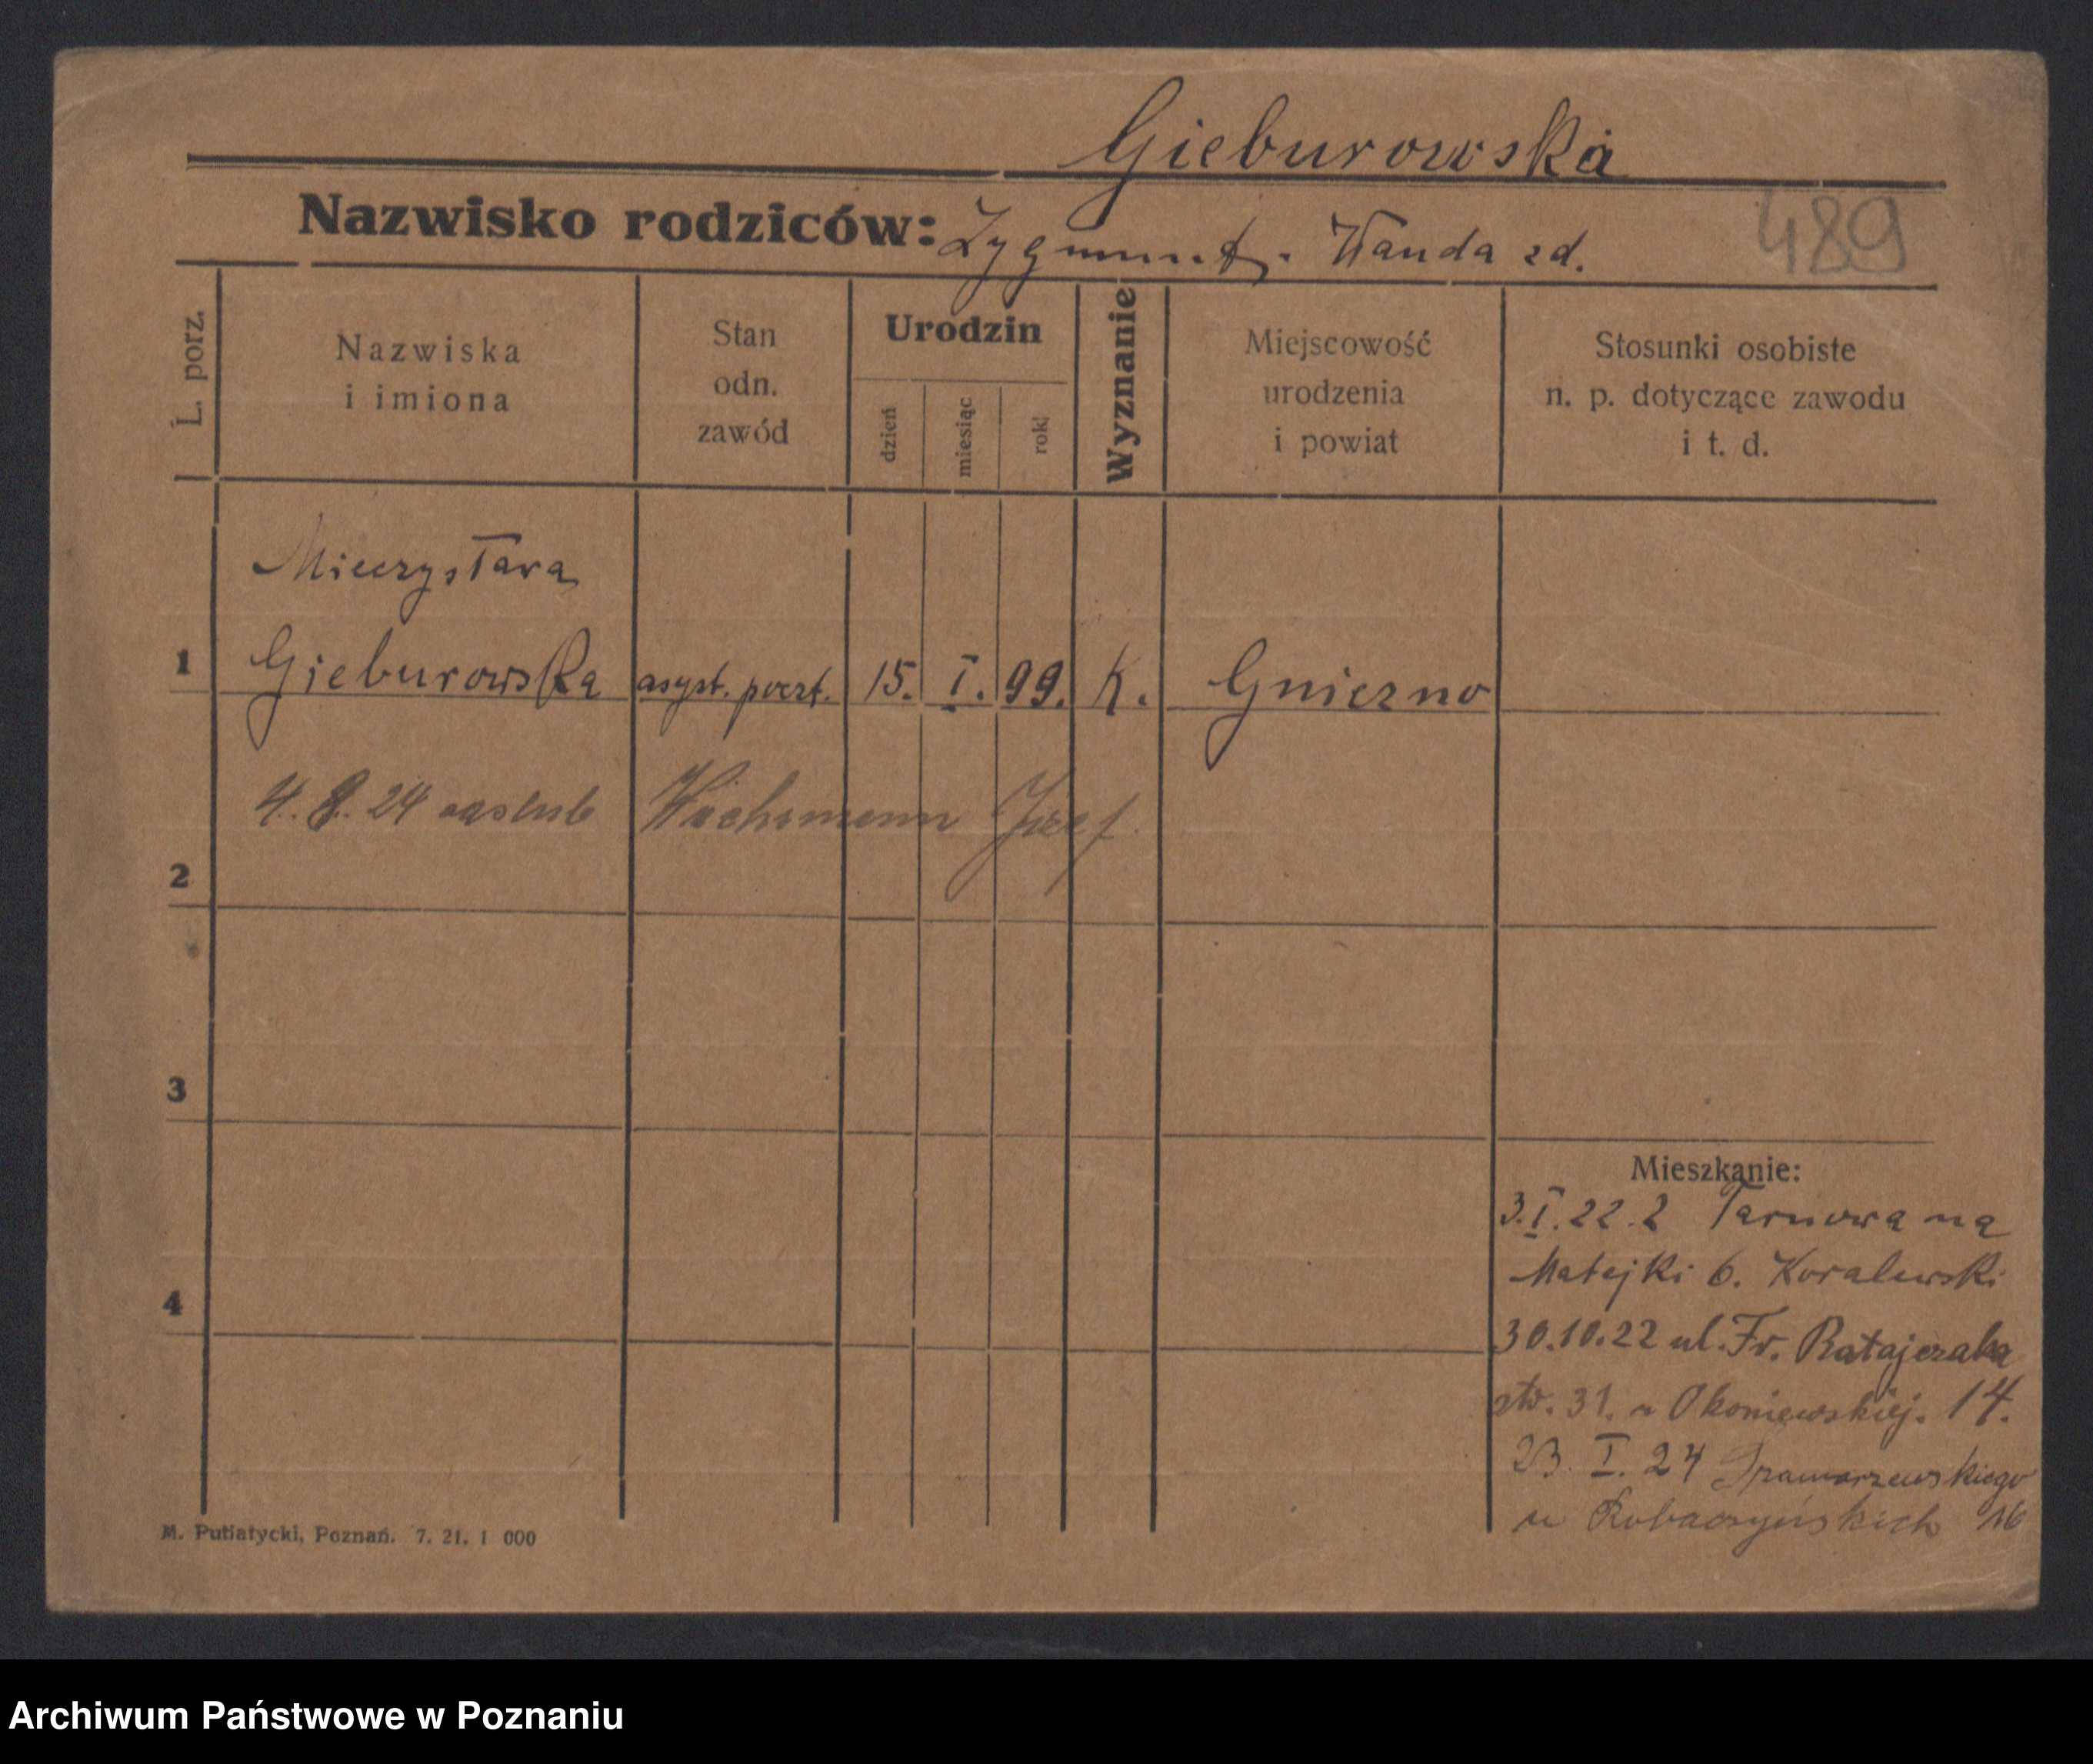 Gieburowska
Nazwisko rodziców: Zygmunt. Wanda zd.
489
L. porz.
Nazwiska
i imiona
Stan
odn.
zawód
Urodzin
dzień
miesiąc
rok
Wyznanie
Miejscowość
urodzenia
i powiat
Stosunki osobiste
n. p. dotyczące zawodu
i t. d.
Mieczysława
1 Gieburowska asyst. poczt. 15. I. 99. K. Gniezno
4. 8. 24 zaslub Wichmann Józef
2
3
Mieszkanie:
3.I.22 z Tarnowa na
Matejki 6. Koralewski
4
30.10.22 ul. Fr. Ratajczaka
31. u Okoniewskiej. 14.
23. I. 24 Szamarzewskiego
u Robaczyńskich 16
M. Putiatycki, Poznań. 7. 21. 1 000
Archiwum Państwowe w Poznaniu